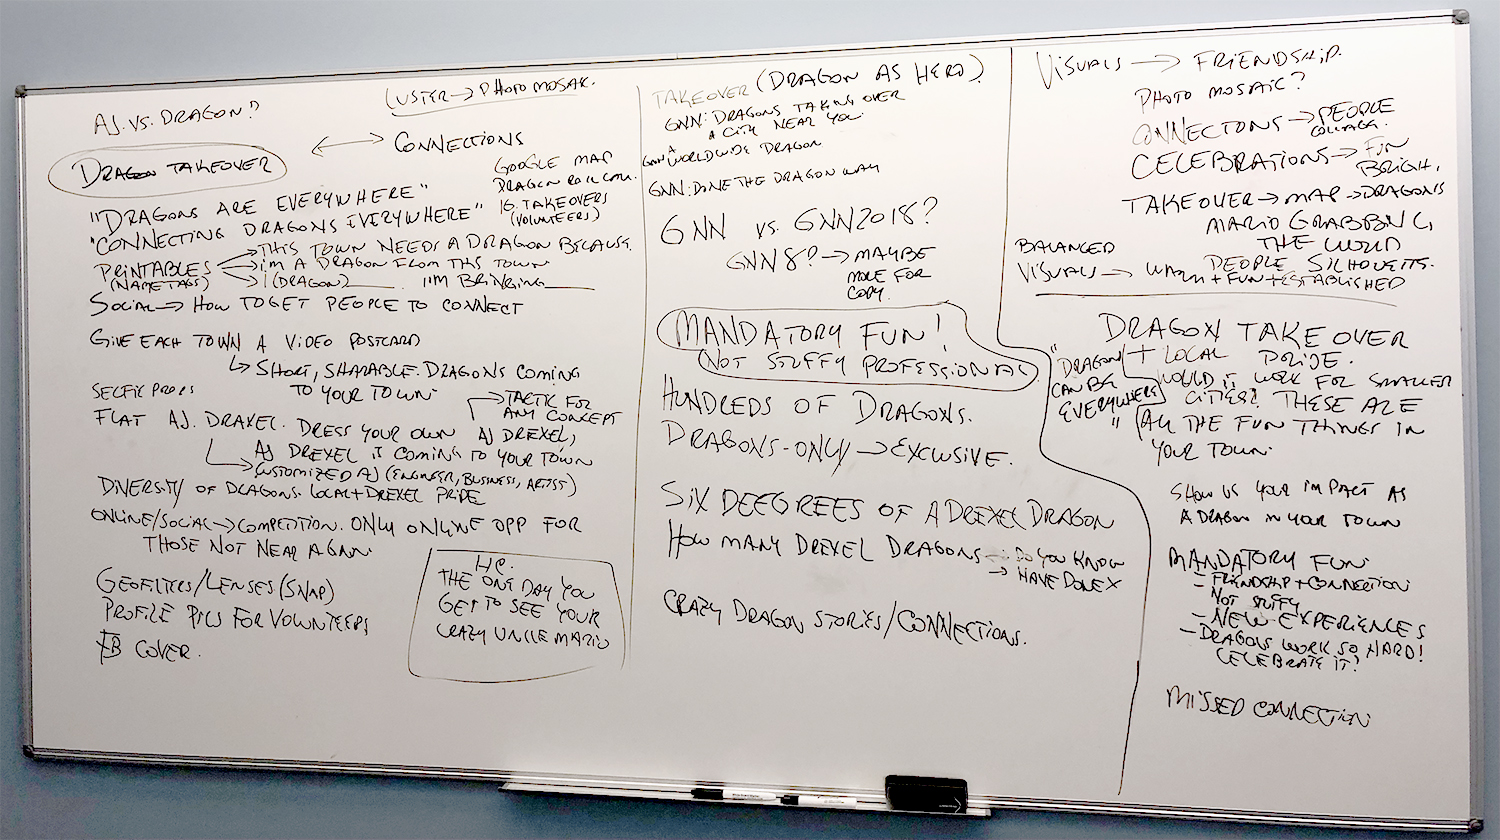 AJ. VS. DRAGON?
CLUSTER → PHOTO MOSAIC.
DRAGON TAKEOVER
↔ CONNECTIONS
GOOGLE MAP
DRAGON ROLL CALL.
IG. TAKEOVERS
(VOLUNTEERS)
"DRAGONS ARE EVERYWHERE"
"CONNECTING DRAGONS EVERYWHERE"
PRINTABLES → THIS TOWN NEEDS A DRAGON BECAUSE
(NAMETAGS) → I'M A DRAGON FROM THIS TOWN
→ I (DRAGON)____ I'M BRINGING____
SOCIAL → HOW TO GET PEOPLE TO CONNECT
GIVE EACH TOWN A VIDEO POSTCARD
↳ SHORT, SHARABLE. DRAGONS COMING
TO YOUR TOWN.
SELFIE PROPS
→ TACTIC FOR
ANY CONCEPT
FLAT AJ. DRAXEL. DRESS YOUR OWN AJ DREXEL,
AJ DREXEL IS COMING TO YOUR TOWN
→ CUSTOMIZED AJ (ENGINEER, BUSINESS, ARTIST)
DIVERSITY OF DRAGONS. LOCAL + DREXEL PRIDE
ONLINE/SOCIAL → COMPETITION. ONLY ONLINE OPP FOR
THOSE NOT NEAR A GNN.
GEOFILTERS/LENSES (SNAP)
PROFILE PICS FOR VOLUNTEERS
FB COVER.
HC.
THE ONE DAY YOU
GET TO SEE YOUR
CRAZY UNCLE MARIO
TAKEOVER (DRAGON AS HERO)
GNN: DRAGONS TAKING OVER
A CITY NEAR YOU.
GNN A WORLDWIDE DRAGON
GNN: DONE THE DRAGON WAY
GNN VS. GNN2018?
GNN8? → MAYBE
MORE FOR
COPY.
MANDATORY FUN!
NOT STUFFY PROFESSIONAL
HUNDREDS OF DRAGONS.
DRAGONS-ONLY → EXCLUSIVE.
SIX DEEGREES OF A DREXEL DRAGON
HOW MANY DREXEL DRAGONS → DO YOU KNOW
→ HAVE DONE X
CRAZY DRAGON STORIES/CONNECTIONS.
VISUALS → FRIENDSHIP.
PHOTO MOSAIC?
CONNECTONS → PEOPLE
COLLAGE.
CELEBRATIONS → FUN
BRIGHT,
TAKEOVER → MAP → DRAGONS
MARIO GRABBING
THE WORLD
PEOPLE SILHOUETTS.
BALANCED
VISUALS → WARM + FUN + ESTABLISHED
DRAGON TAKEOVER
+ LOCAL PRIDE.
"DRAGON
CAN BE
EVERYWHERE"
WOULD IT WORK FOR SMALLER
CITIES? THESE ARE
ALL THE FUN THINGS IN
YOUR TOWN.
SHOW US YOUR IMPACT AS
A DRAGON IN YOUR TOWN
MANDATORY FUN.
- FRIENDSHIP + CONNECTION
NOT STUFFY
- NEW EXPERIENCES
- DRAGONS WORK SO HARD!
CELEBRATE IT?
MISSED CONNECTION